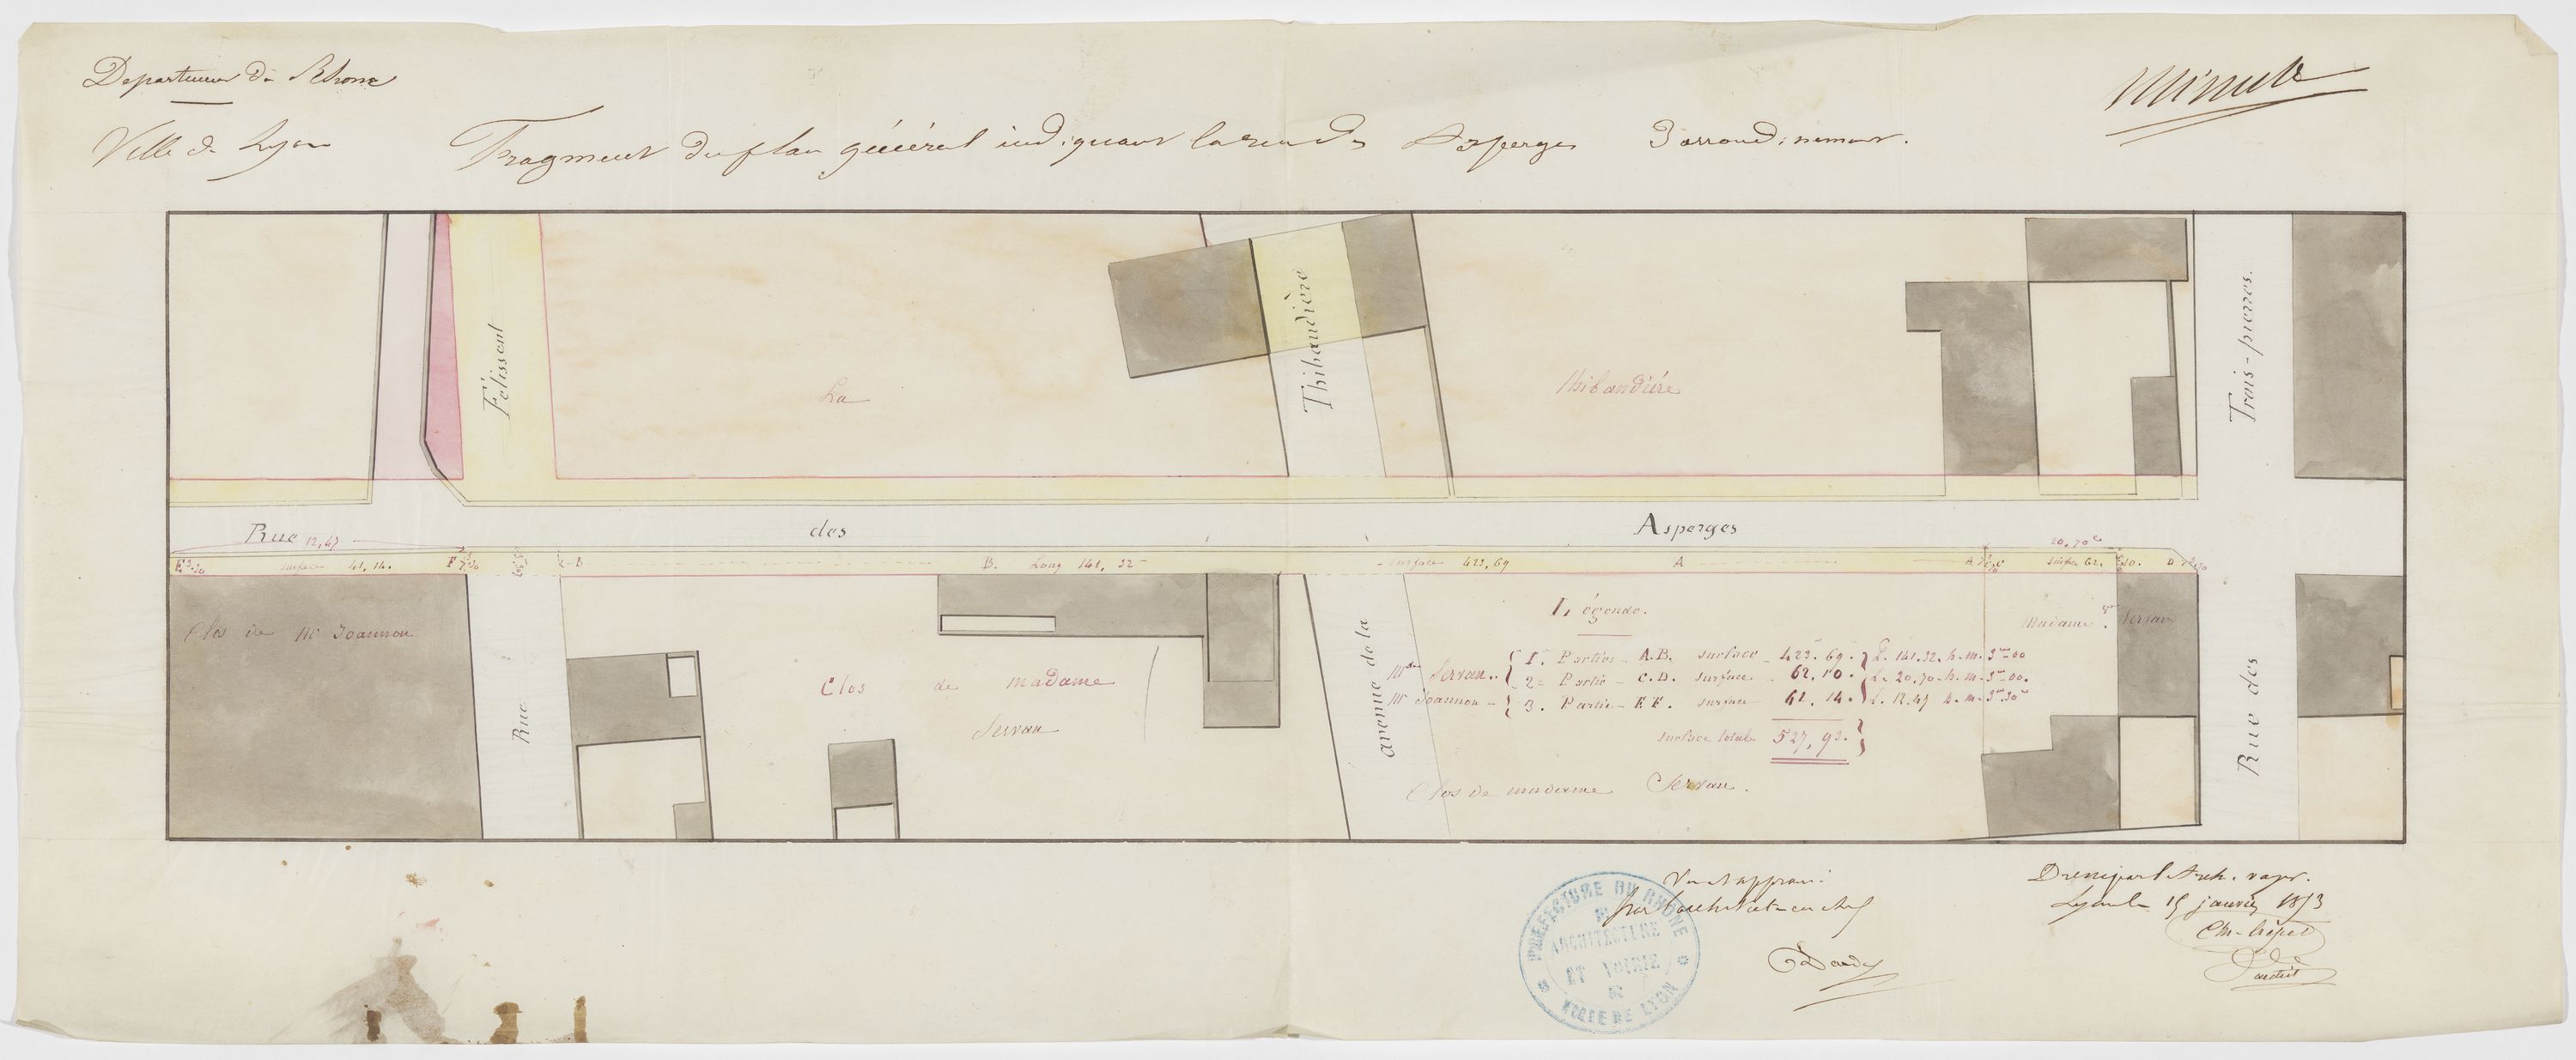 Departement du Rhone
Minute
Ville de Lyon
Fragment du plan général indiquant la rue des Asperges 3 arrondissement.
Félissent
Thibaudière
Trois-pierres.
La
thibaudière
Rue des Asperges
12,47
20,70
E 3.30 surface 41, 14. F
B
B. Long 141, 32
surface 423,69
A
A
surface 62, 10. D
Clos de Mr Joannon
Rue
Clos de madame
Servan
avenue de la
Légende.
Mme Servan.. 1. Parties - A.B. surface - 423. 69. L. 141.32. h. m. 3m 00
2= Partie - C.D. surface. 62, 10. L. 20,70. h. m. 3m 00.
Mr Joannon - 3. Partie - E F. surface 41. 14. L. 12.47 h. m. 3m 30
surface total 527, 93.
Clos de madame Servan.
Madame Servan
Rue des
Vu et approuvé
par l'architecte en chef
Dardel
PREFECTURE DU RHONE
ARCHITECTURE
ET VOIRIE
VILLE DE LYON
Lyon le 15 janvier 1873